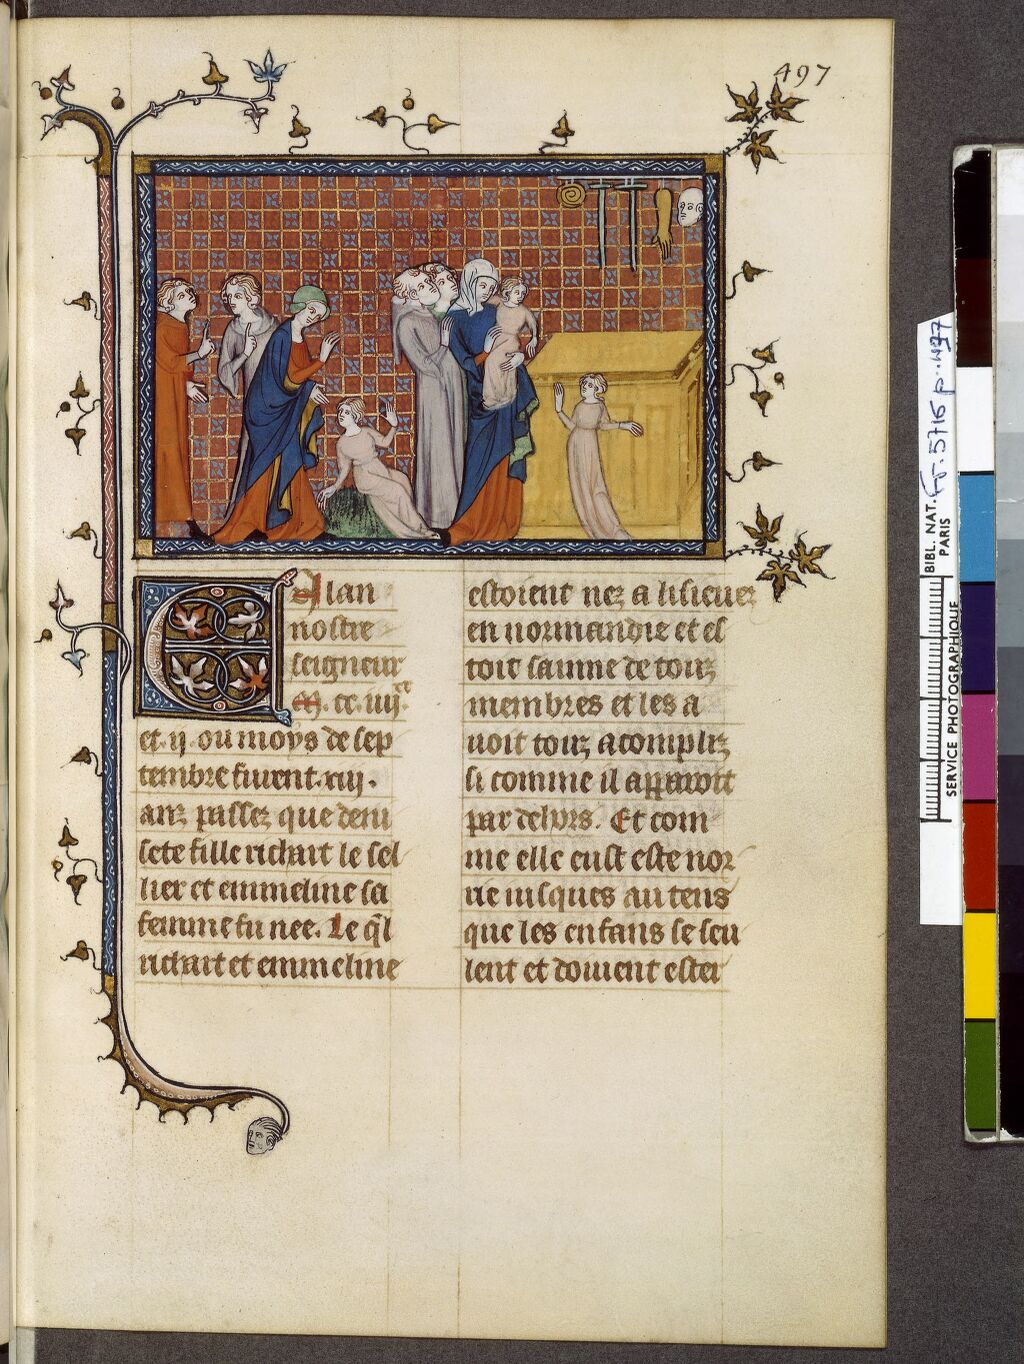 497
El an
nostre
seigneur
M. cc. iiij.
et. ij. ou moys de sep
tembre furent. xiij.
anz passez que deni
sete fille richart le sel
lier et emmeline sa
femme fu nee. Le q̃l
richart et emmeline
estoient nez a lisieuez
en normandie et es
toit sainne de touz
membres et les a
uoit touz acompliz
si comme il apparoit
par dehors. Et com
me elle eust este nor
rie iusques au tens
que les enfans se seu
lent et doiuent ester
BIBL. NAT.
PARIS
Fr. 5716 p. 497
SERVICE PHOTOGRAPHIQUE